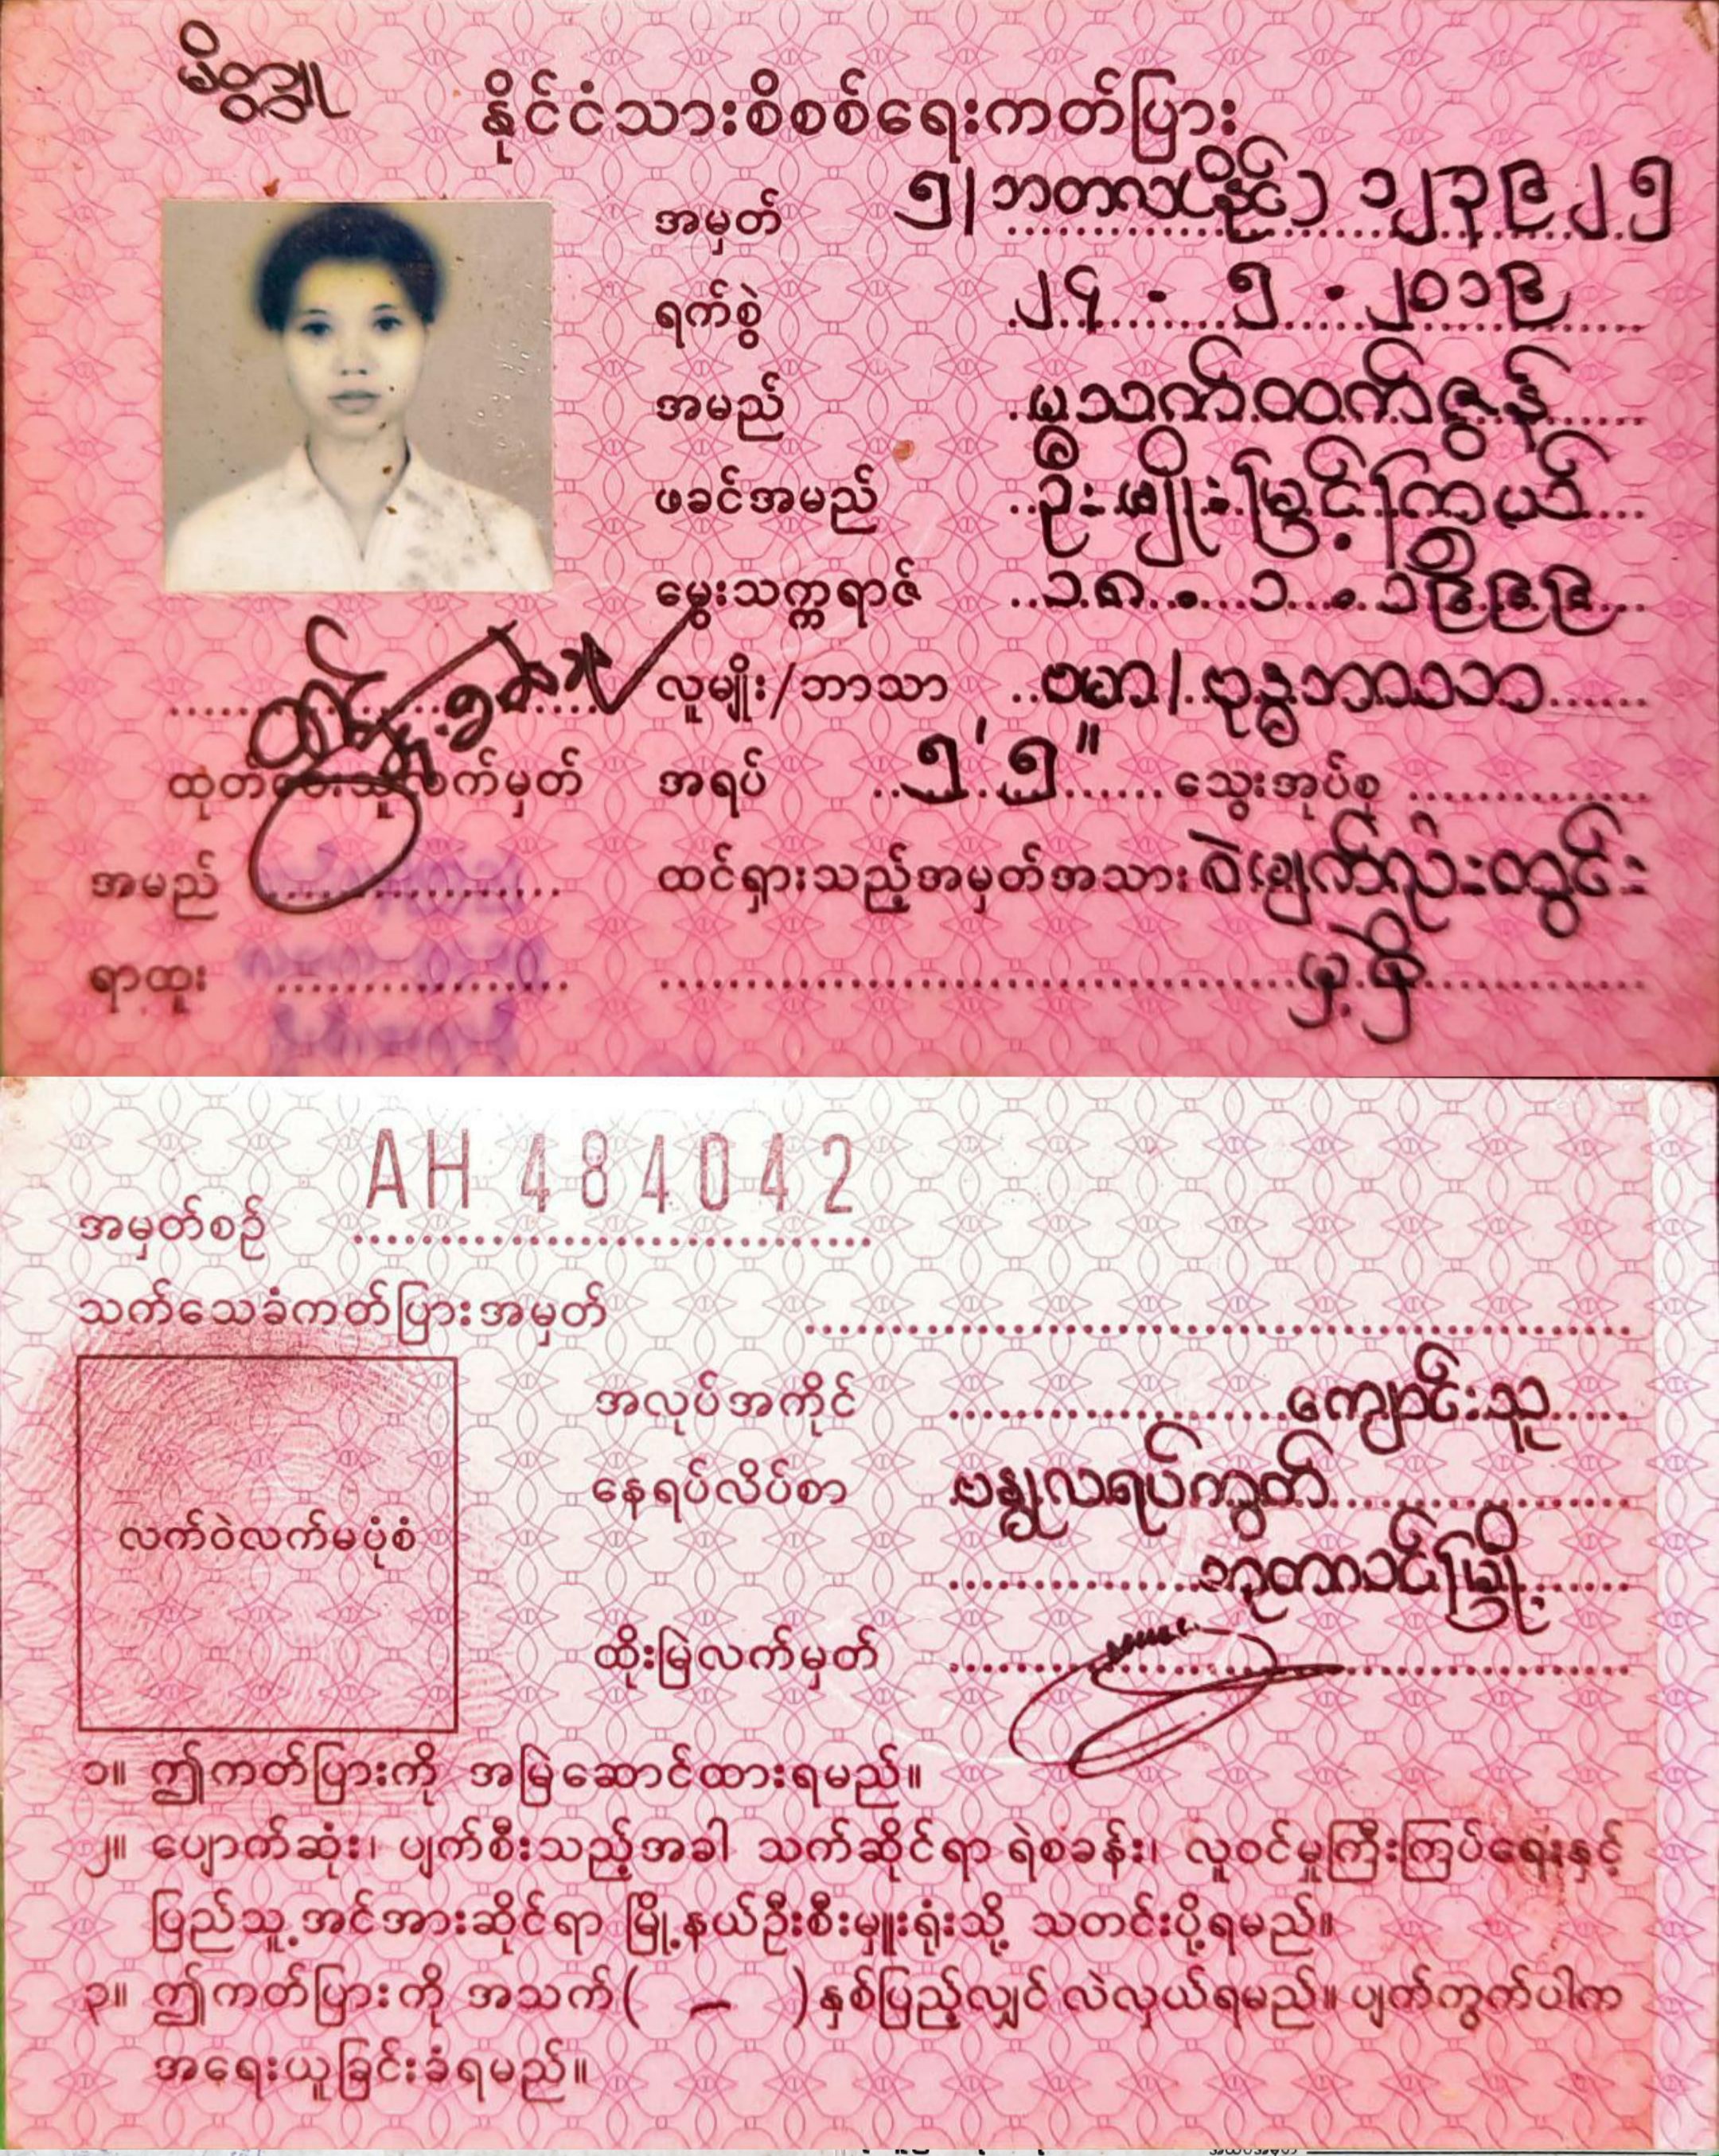 မိတ္တူ
နိုင်ငံသားစိစစ်ရေးကတ်ပြား
အမှတ် ၅/ဘတလ(နိုင်) ၁၂၃၉၂၅
ရက်စွဲ ၂၄ . ၅ . ၂၀၁၉
အမည် မသက်ထက်ဇွန်
ဖခင်အမည် ဦးမျိုးမြင့်ကြွယ်
မွေးသက္ကရာဇ် ၁၈ . ၁ . ၁၉၉၉
လူမျိုး/ဘာသာ ဗမာ/ဗုဒ္ဓဘာသာ
ထုတ်ပေးသူလက်မှတ် အရပ် ၅' ၅" သွေးအုပ်စု
အမည် ထင်ရှားသည့်အမှတ်အသား ဝဲမျက်လုံးတွင်း
ရာထူး မှဲ့
AH 484042
အမှတ်စဉ်
သက်သေခံကတ်ပြားအမှတ်
အလုပ်အကိုင် ကျောင်းသူ
လက်ဝဲလက်မပုံစံ
နေရပ်လိပ်စာ ဗန္ဓုလရပ်ကွက်
ဘုတလင်မြို့
ထိုးမြဲလက်မှတ်
၁။ ဤကတ်ပြားကို အမြဲဆောင်ထားရမည်။
၂။ ပျောက်ဆုံး၊ ပျက်စီးသည့်အခါ သက်ဆိုင်ရာ ရဲစခန်း၊ လူဝင်မှုကြီးကြပ်ရေးနှင့်
ပြည်သူ့အင်အားဆိုင်ရာ မြို့နယ်ဦးစီးမှူးရုံးသို့ သတင်းပို့ရမည်။
၃။ ဤကတ်ပြားကို အသက်( – )နှစ်ပြည့်လျှင် လဲလှယ်ရမည်။ ပျက်ကွက်ပါက
အရေးယူခြင်းခံရမည်။